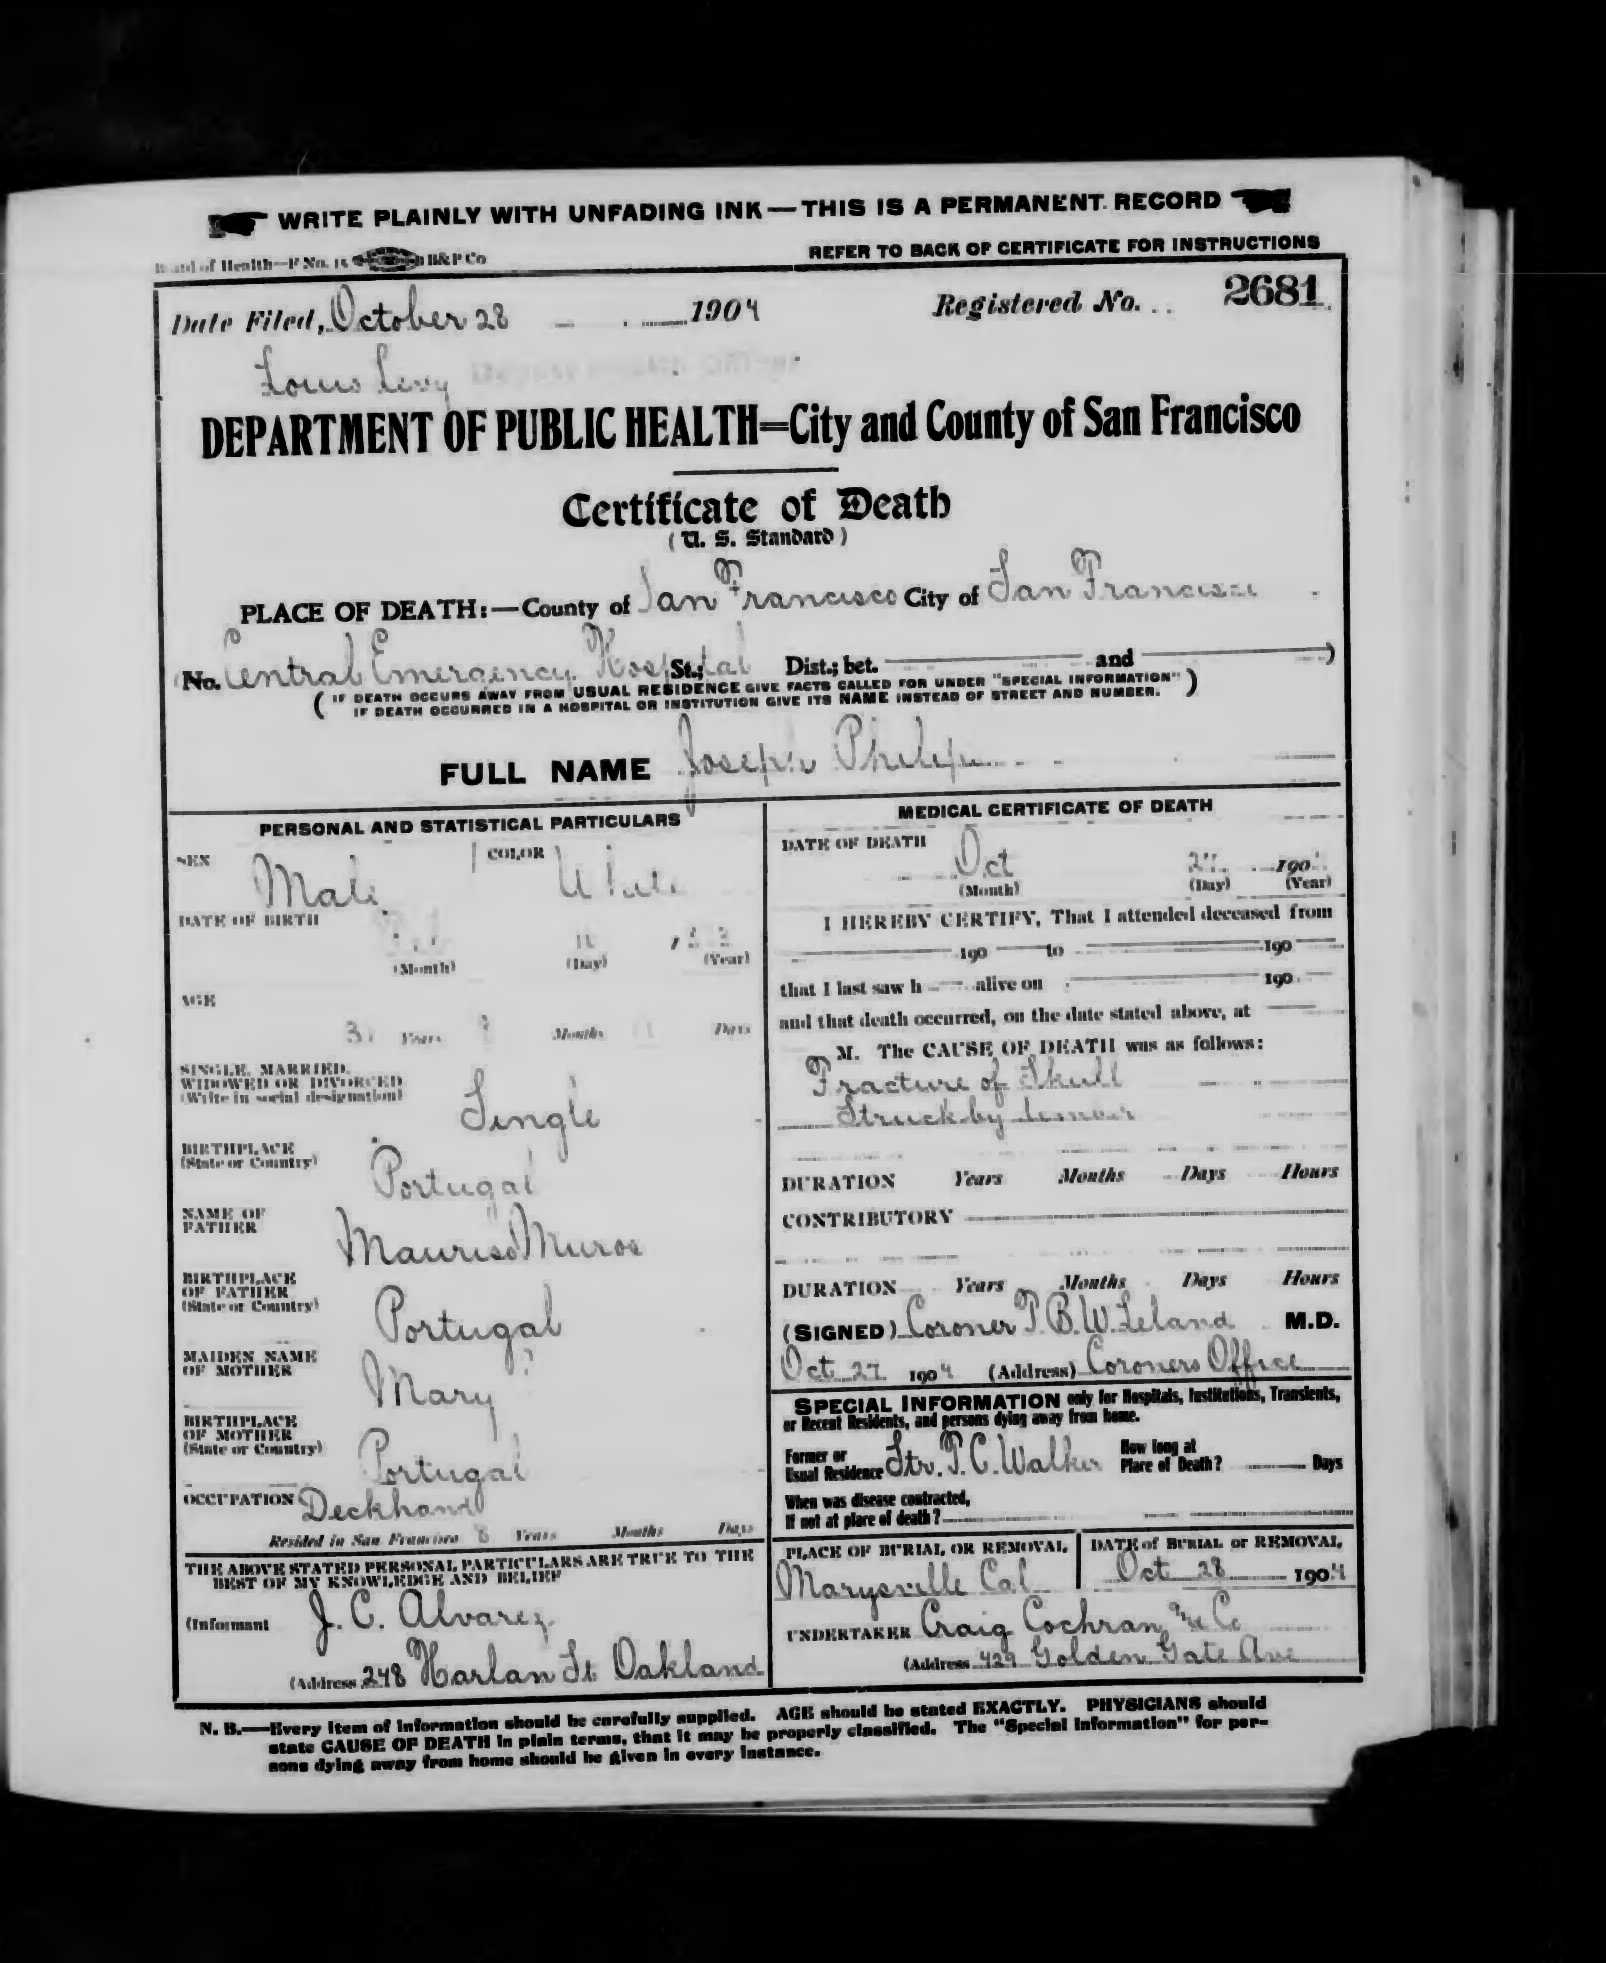 WRITE PLAINLY WITH UNFADING INK — THIS IS A PERMANENT RECORD
Board of Health—F No. 15 B&P Co
REFER TO BACK OF CERTIFICATE FOR INSTRUCTIONS
Date Filed, October 28 1904 Registered No. 2681
Louis Levy
DEPARTMENT OF PUBLIC HEALTH=City and County of San Francisco
Certificate of Death
(U. S. Standard)
PLACE OF DEATH:—County of San Francisco City of San Francisco
(No. Central Emergency Hospital St.; Dist.; bet. and )
( IF DEATH OCCURS AWAY FROM USUAL RESIDENCE GIVE FACTS CALLED FOR UNDER "SPECIAL INFORMATION" )
IF DEATH OCCURRED IN A HOSPITAL OR INSTITUTION GIVE ITS NAME INSTEAD OF STREET AND NUMBER.
FULL NAME Joseph Philip
PERSONAL AND STATISTICAL PARTICULARS
SEX Male COLOR White
DATE OF BIRTH
(Month) (Day) (Year)
AGE
Years Months Days
SINGLE, MARRIED,
WIDOWED OR DIVORCED
(Write in social designation)
Single
BIRTHPLACE
(State or Country)
Portugal
NAME OF
FATHER
Mauriso Muros
BIRTHPLACE
OF FATHER
(State or Country)
Portugal
MAIDEN NAME
OF MOTHER
Mary ?
BIRTHPLACE
OF MOTHER
(State or Country)
Portugal
OCCUPATION Deckhand
Resided in San Francisco 8 Years Months Days
THE ABOVE STATED PERSONAL PARTICULARS ARE TRUE TO THE
BEST OF MY KNOWLEDGE AND BELIEF
(Informant J. C. Alvarez
(Address 248 Harlan St. Oakland
MEDICAL CERTIFICATE OF DEATH
DATE OF DEATH
Oct 27 190
(Month) (Day) (Year)
I HEREBY CERTIFY, That I attended deceased from
190 to 190
that I last saw h alive on 190
and that death occurred, on the date stated above, at
M. The CAUSE OF DEATH was as follows:
Fracture of Skull
Struck by
DURATION Years Months Days Hours
CONTRIBUTORY
DURATION Years Months Days Hours
(SIGNED) Coroner T. B. W. Leland M.D.
Oct 27 1904 (Address) Coroners Office
SPECIAL INFORMATION only for Hospitals, Institutions, Transients,
or Recent Residents, and persons dying away from home.
Former or
Usual Residence Str. T. C. Walker
How long at
Place of Death? Days
When was disease contracted,
If not at place of death?
PLACE OF BURIAL OR REMOVAL
Marysville Cal
DATE of BURIAL or REMOVAL
Oct 28 1904
UNDERTAKER Craig Cochran & Co
(Address 429 Golden Gate Ave
N. B.—Every item of information should be carefully supplied. AGE should be stated EXACTLY. PHYSICIANS should
state CAUSE OF DEATH in plain terms, that it may be properly classified. The "Special Information" for per-
sons dying away from home should be given in every instance.